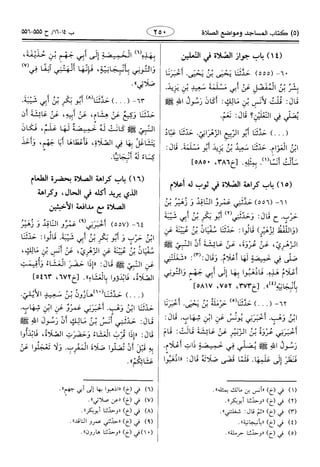 (٥) كتاب المساجد ومواضع الصلاة
٢٥٠
ب ١٤-١٦/ ح ٥٥٥-٥٥٦
(١٤) باب جواز الصلاة في النعلين
٦٠ - (٥٥٥) حدثنا يحيى بن يحيى. أخبرنا
بشر بن المفضل عن أبي مسلمة سعيد بن يزيد.
قال: قلت لأنس بن مالك: أكان رسول الله ﷺ
يصلي في النعلين؟ قال: نعم.
(...) حدثنا أبو الربيع الزهراني. حدثنا عباد
بن العوام. حدثنا سعيد بن يزيد أبو مسلمة. قال:
سألت أنسا(١). بمثله. [خ ٣٨٦، ٥٨٥٠]
(١٥) باب كراهة الصلاة في ثوب له أعلام
٦١ - (٥٥٦) حدثني عمرو الناقد وزهير بن
حرب. ح قال: وحدثني(٢) أبو بكر بن أبي شيبة
(واللفظ لزهير) قالوا: حدثنا سفيان بن عيينة عن
الزهري، عن عروة، عن عائشة أن النبي ﷺ
صلى في خميصة لها أعلام. وقال:(٣) «شغلتني
أعلام هذه. فاذهبوا بها إلى أبي جهم وائتوني
بأنبجانيه»(٤). [خ ٣٧٣، ٧٥٢، ٥٨١٧]
٦٢ - (...) حدثنا(٥) حرملة بن يحيى. أخبرنا
ابن وهب. أخبرني يونس عن ابن شهاب. قال:
أخبرني عروة بن الزبير عن عائشة قالت: قام
رسول الله ﷺ يصلي في خميصة ذات أعلام.
فنظر إلى علمها. فلما قضى صلاته قال: «اذهبوا
بهذه(٦) الخميصة إلى أبي جهم بن حذيفة،
وائتوني بأنبجانية، فإنها ألهتني آنفا في(٧)
صلاتي».
٦٣ - (...) حدثنا(٨) أبو بكر بن أبي شيبة.
حدثنا وكيع عن هشام، عن أبيه، عن عائشة أن
النبي ﷺ كانت له خميصة لها علم. فكان
يتشاغل بها في الصلاة. فأعطاها أبا جهم. وأخذ
كساء له أنبجانيا.
(١٦) باب كراهة الصلاة بحضرة الطعام
الذي يريد أكله في الحال، وكراهة
الصلاة مع مدافعة الأخبثين
٦٤ - (٥٥٧) أخبرني(٩) عمرو الناقد وزهير
ابن حرب وأبو بكر بن أبي شيبة. قالوا: حدثنا
سفيان بن عيينة عن الزهري، عن أنس بن مالك،
عن النبي ﷺ قال: «إذا حضر العشاء وأقيمت
الصلاة، فابدؤوا بالعشاء». [خ ٦٧٢، ٥٤٦٣]
(...) حدثنا(١٠) هارون بن سعيد الأيلي.
حدثنا ابن وهب. أخبرني عمرو عن ابن شهاب.
قال: حدثني أنس بن مالك أن رسول الله ﷺ
قال: «إذا قرب العشاء وحضرت الصلاة، فابدؤوا
به قبل أن تصلوا صلاة المغرب. ولا تعجلوا عن
عشائكم».
(١) في (خ) «أنس بن مالك بمثله».
(٢) في (خ) «وحدثنا أبو بكر».
(٣) في (خ) «ثم قال: شغلتني».
(٤) في (خ) «بأنبجانية».
(٥) في (خ) «وحدثنا حرملة».
(٦) في (خ) «اذهبوا بها إلى أبي جهم».
(٧) في (خ) «عن صلاتي».
(٨) في (خ) «وحدثنا أبو بكر».
(٩) في (خ) «حدثني عمرو الناقد».
(١٠) في (خ) «وحدثنا هارون».